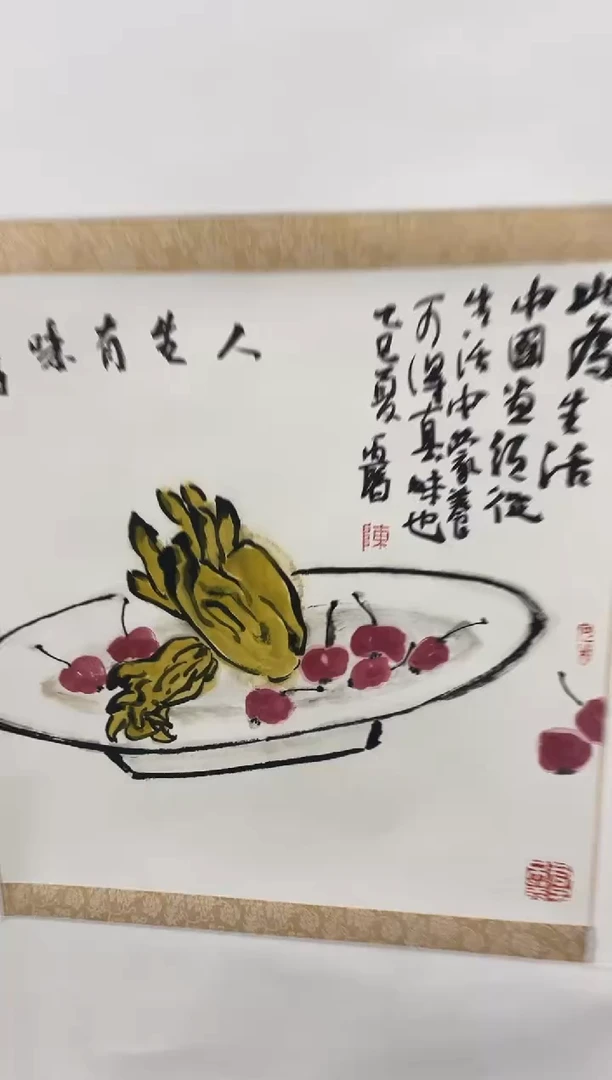 此為生活
中國画須從
生活中蒙養
可得真味也
乙巳夏
人生有味